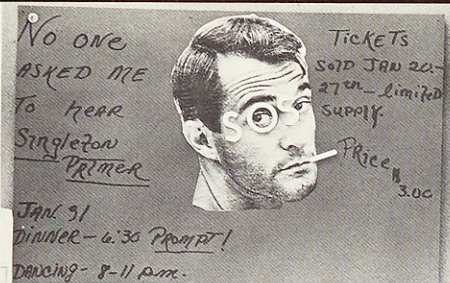 No one
ASKED ME
To HEAR
Singleton
PRIMER
JAN. 31
DINNER - 6:30 PROMPT!
DANCING - 8-11 p.m.
SOS
TICKETS
Sold JAN 20.-
27th - limited
SUPPLY.
PRICE
$3.00